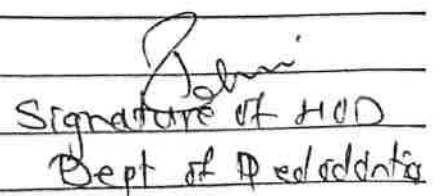 Signature of HOD
Dept of Pedodontia